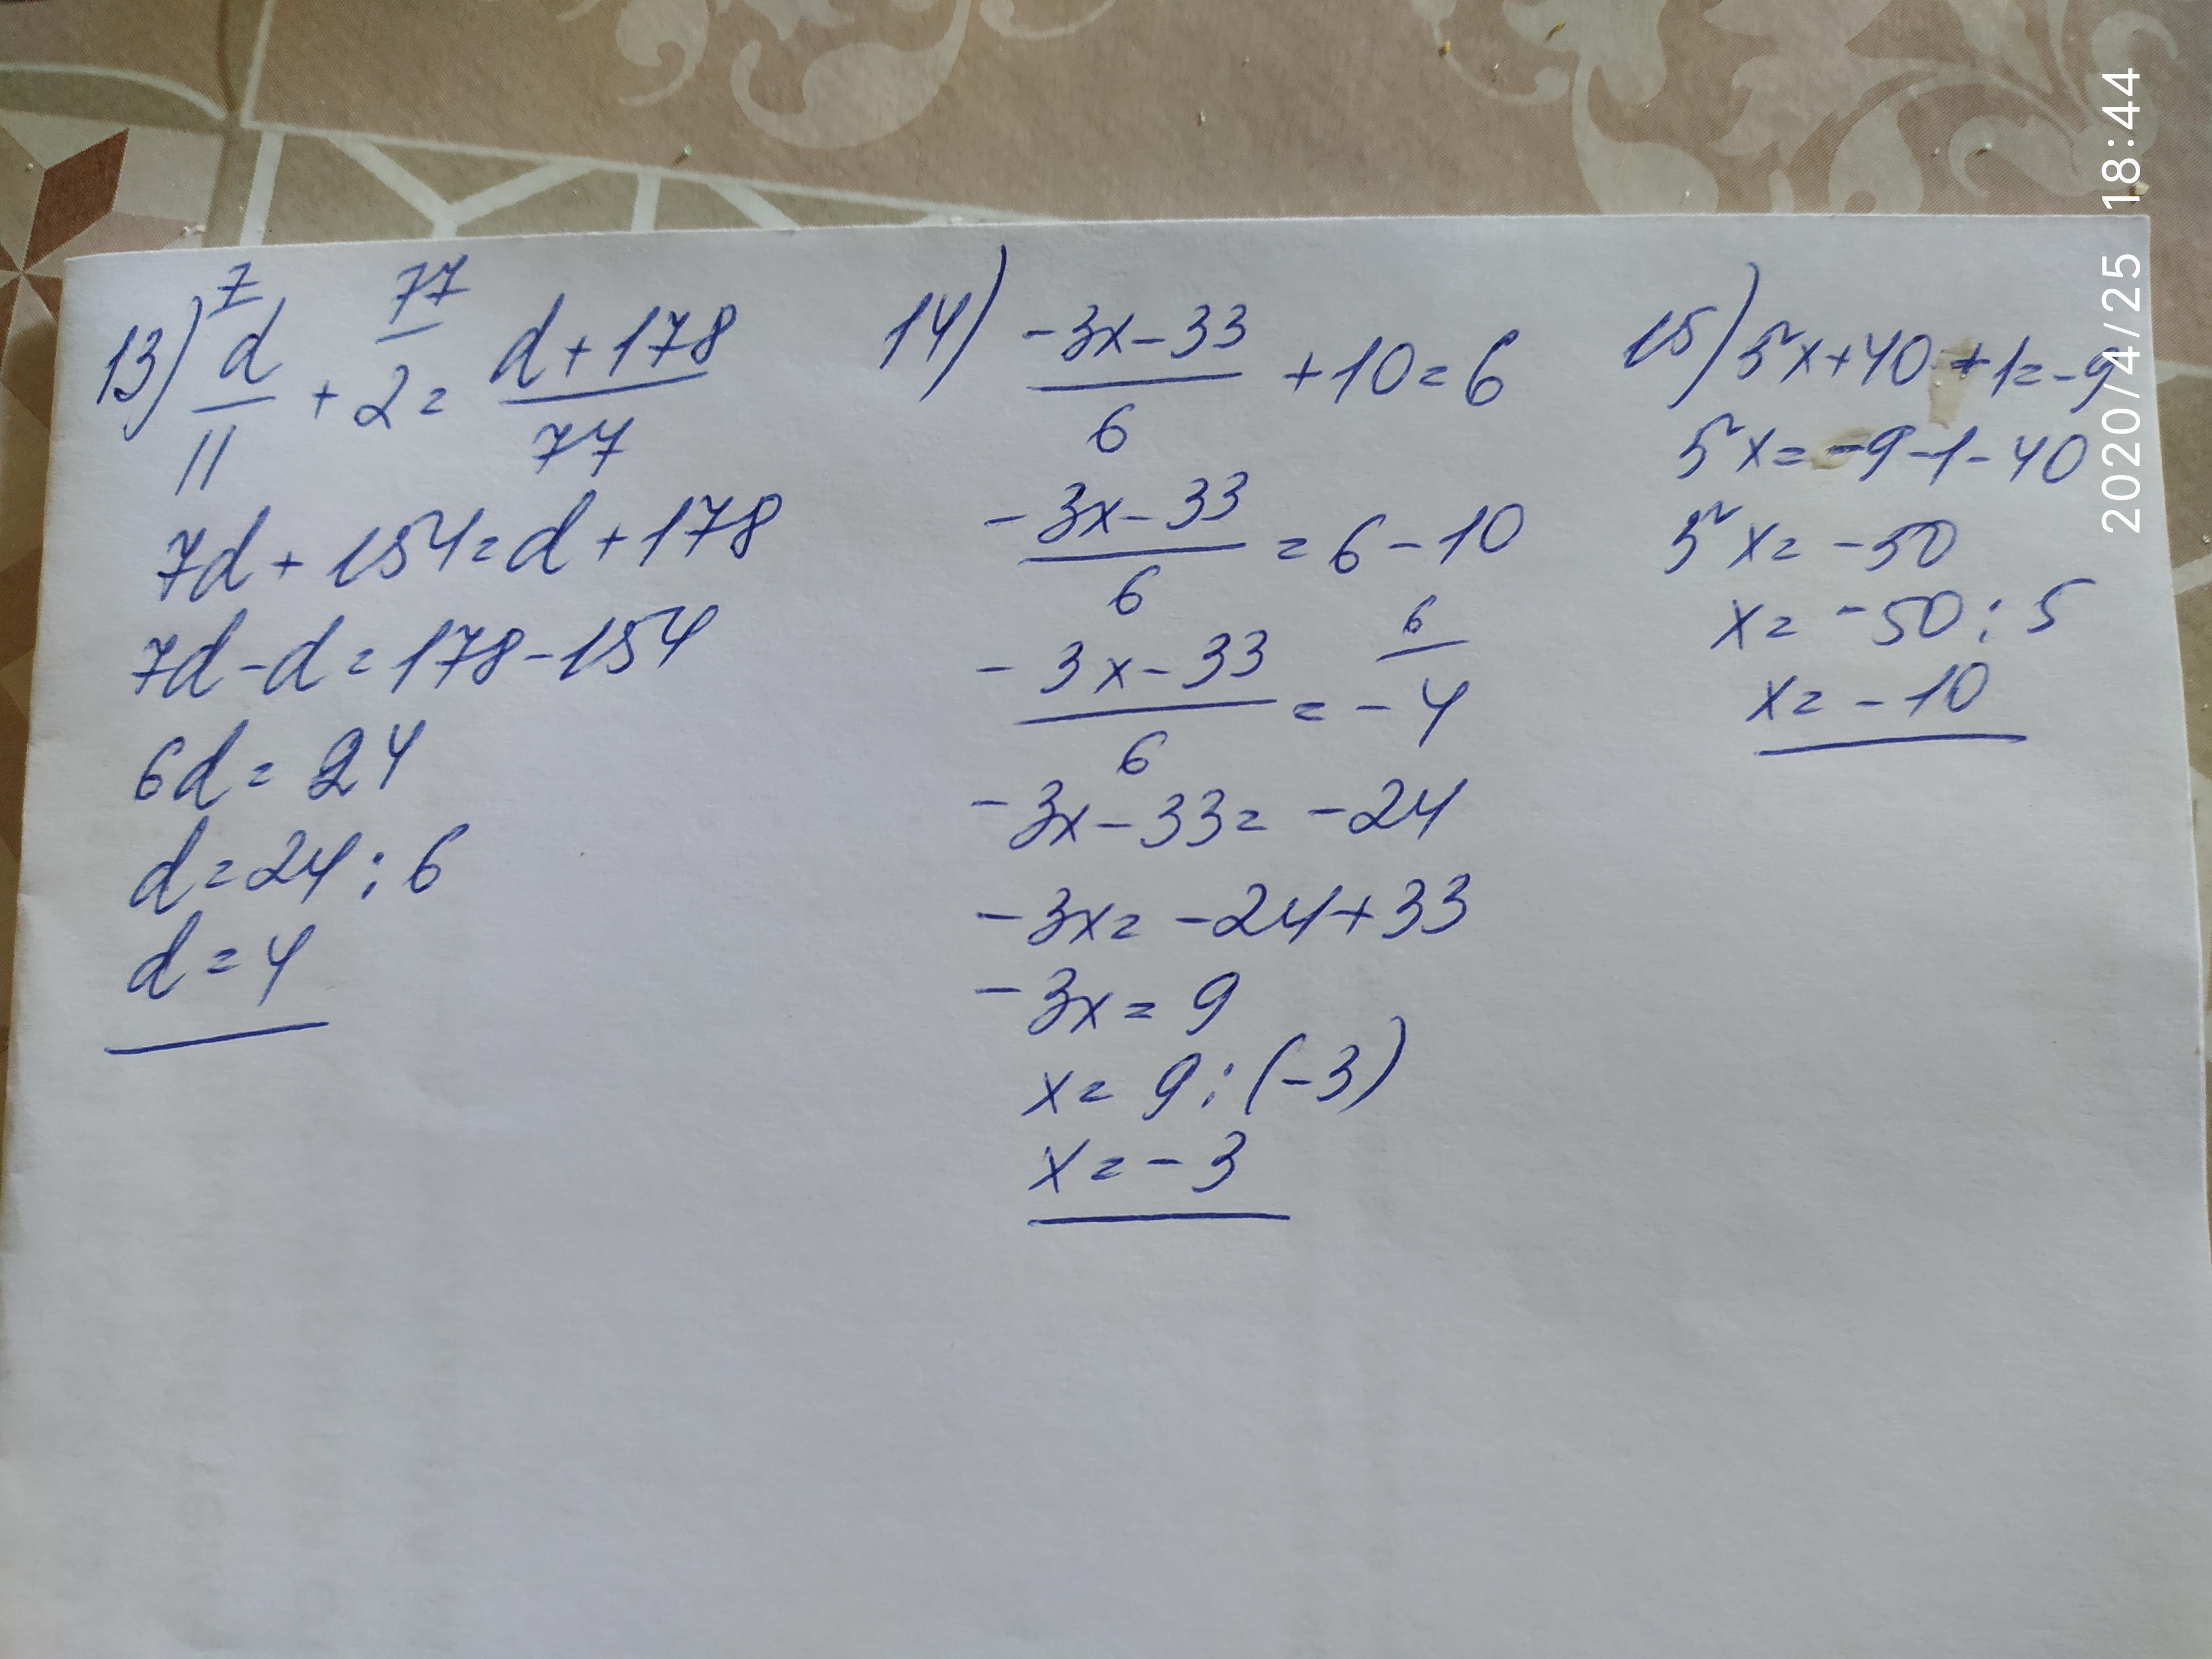 13) 7 77
d/11 + 2 = d+178/77
7d + 154 = d + 178
7d - d = 178 - 154
6d = 24
d = 24 : 6
d = 4
14) -3x-33/6 + 10 = 6
-3x-33/6 = 6 - 10
-3x-33/6 = -4 6
-3x - 33 = -24
-3x = -24 + 33
-3x = 9
x = 9 : (-3)
x = -3
15) 5x + 40 + 1 = -9
5x = -9 - 1 - 40
5x = -50
x = -50 : 5
x = -10
2020/4/25 18:44